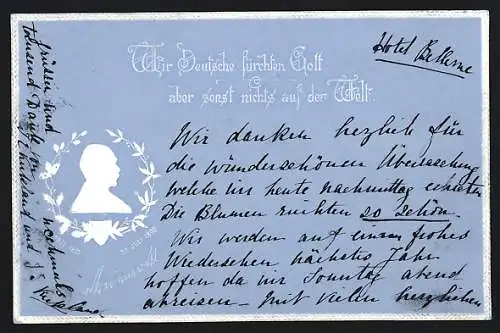 Wir Deutsche fürchten Gott
aber sonst nichts auf der Welt.
Hotel Bellevue
Wir danken herzlich für
die wunderschönen Überraschung
welche uns heute nachmittag
Die Blumen riechten so schön.
Wir werden auf einem frohes
Wiedersehen nächstes Jahr
hoffen da wir Sonntag abend
abreisen - mit vielen herzlichen
grüssen und
tausend Dank
nochmals